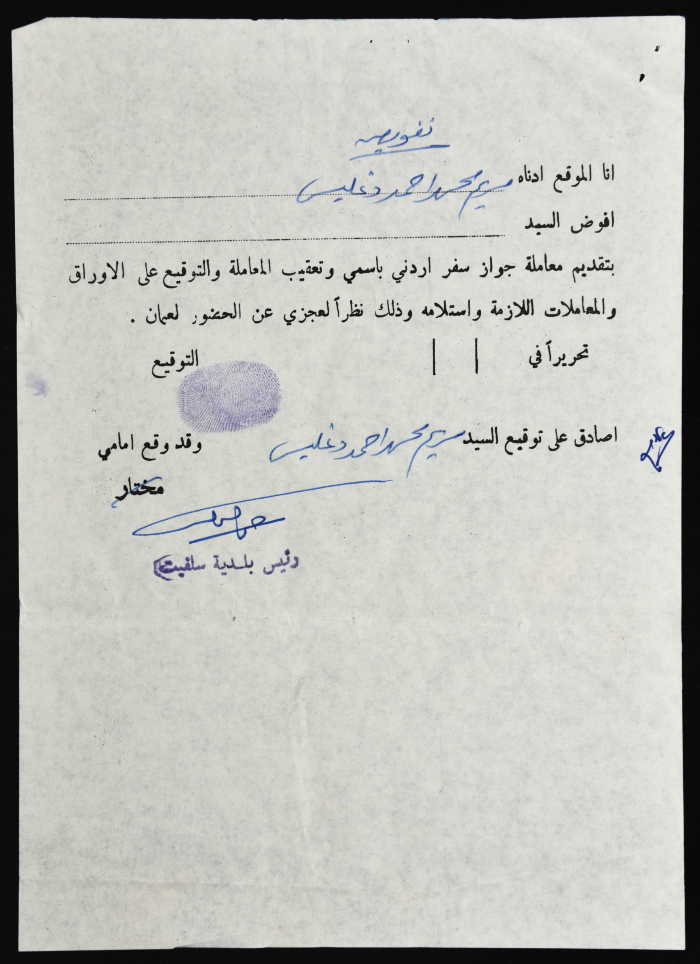 تفويض
انا الموقع ادناه مريم محمد احمد دغليس
افوض السيد
بتقديم معاملة جواز سفر اردني باسمي وتعقيب المعاملة والتوقيع على الاوراق
والمعاملات اللازمة واستلامه وذلك نظراً لعجزي عن الحضور لعمان .
تحريراً في | | التوقيع
اصادق على توقيع السيد مريم محمد احمد دغليس وقد وقع امامي
مختار
رئيس بلدية سلفيت